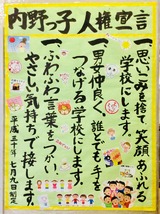 内野っ子人権宣言
一思いこみを捨て、笑顔あふれる
学校にします。
一男女仲良く、誰とでも手を
つなげる学校にします。
一ふわふわ言葉をつかい、
やさしい気持ちで接します。
平成三十年七月九日制定